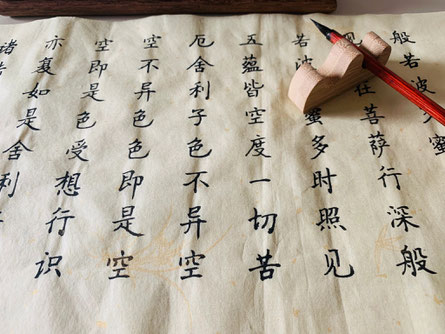 般若波蜜
在菩萨行深般
若波蜜多时照见
五蕴皆空度一切苦
厄舍利子色不异空
空不异色色即是空
空即是色受想行识
亦复如是舍利
诸